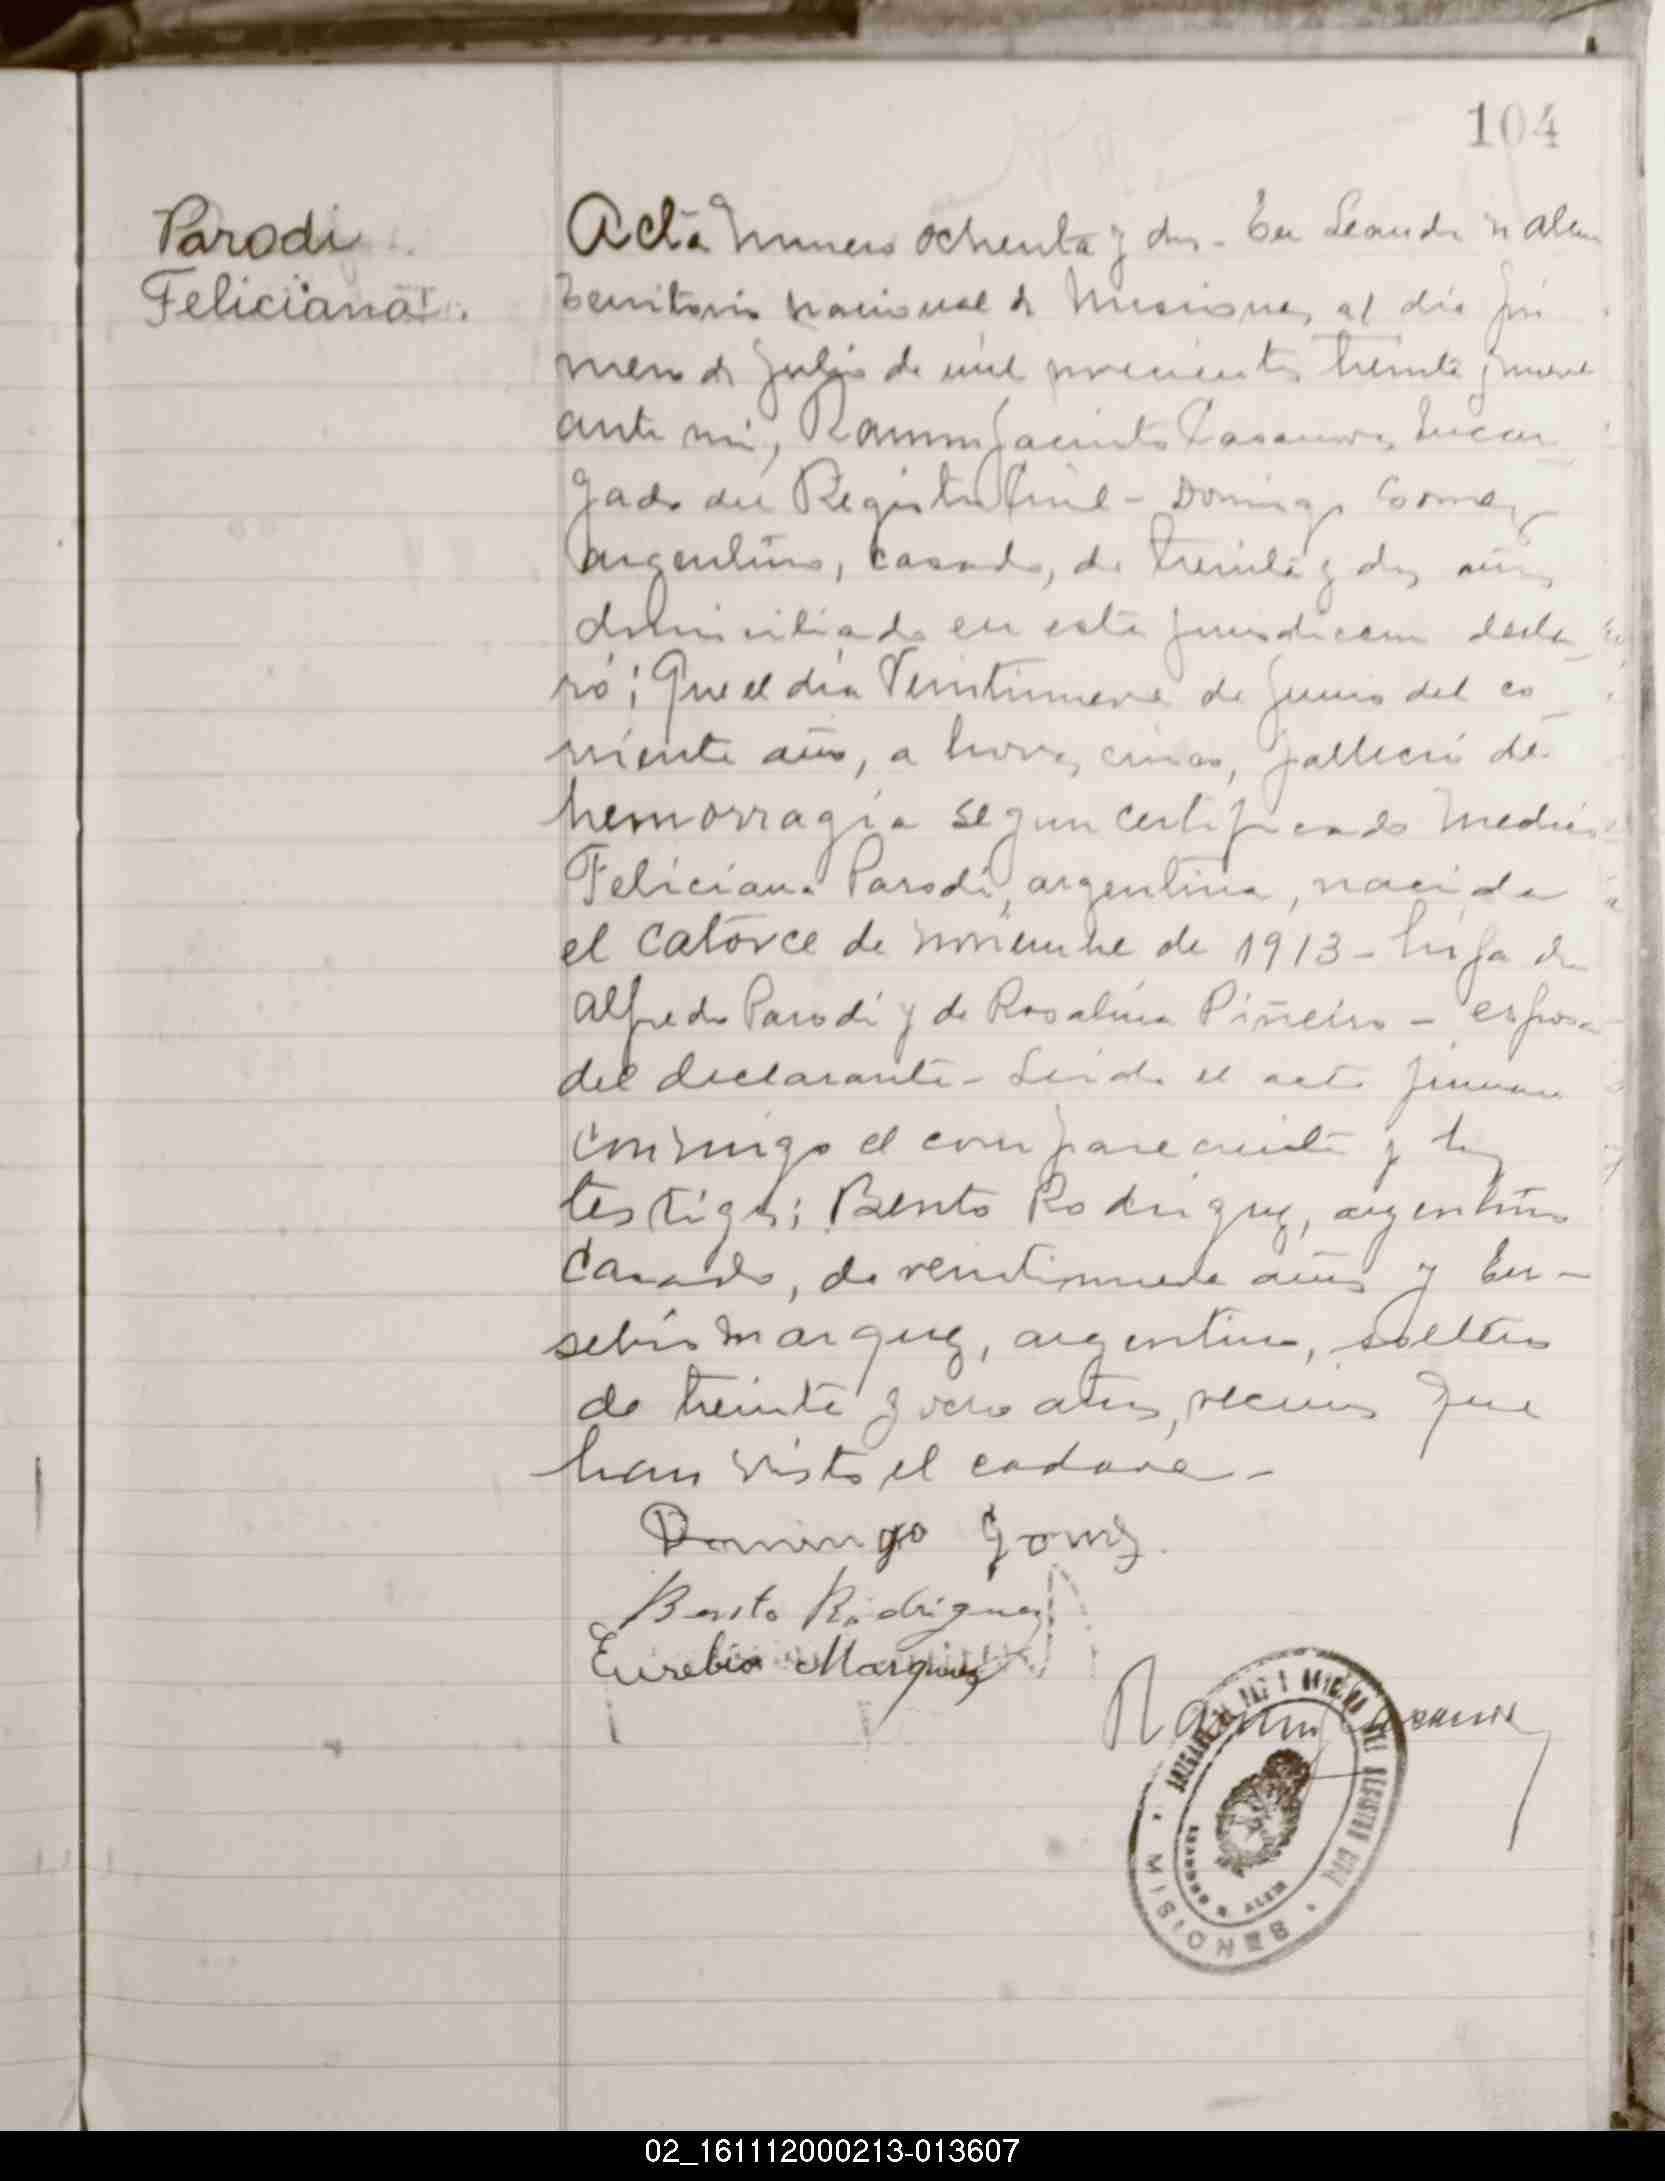 104
Parodi
Feliciana
Acta Numero ochenta y dos - En Leandro N Alem
territorio nacional de Misiones, al dia pri
mero de Julio de mil novecientos treinta y nueve
ante mi, Ramon Jacinto Casanova, Encar
gado del Registro Civil - Domingo Gomez,
argentino, casado, de treinta y dos años
domiciliado en esta jurisdiccion decla
ró; Que el dia Veintinueve de Junio del co
rriente año, a horas cinco, falleció de
hemorragia segun certificado medico
Feliciana Parodi, argentina, nacida
el catorce de noviembre de 1913 - hija de
Alfredo Parodi y de Rosalina Piñeiro - esposa
del declarante - Leida el acta firman
conmigo el compareciente y los
testigos; Bento Rodriguez, argentino
casado, de veintinueve años y Eu-
sebio Marquez, argentino, soltero
de treinta y ocho años, vecinos que
han visto el cadaver -
Domingo Gomez
Bento Rodriguez
Eusebio Marquez
Ramon J Casanova
JUZGADO DE PAZ Y OFICINA DEL REGISTRO CIVIL
LEANDRO N. ALEM
MISIONES
02_161112000213-013607